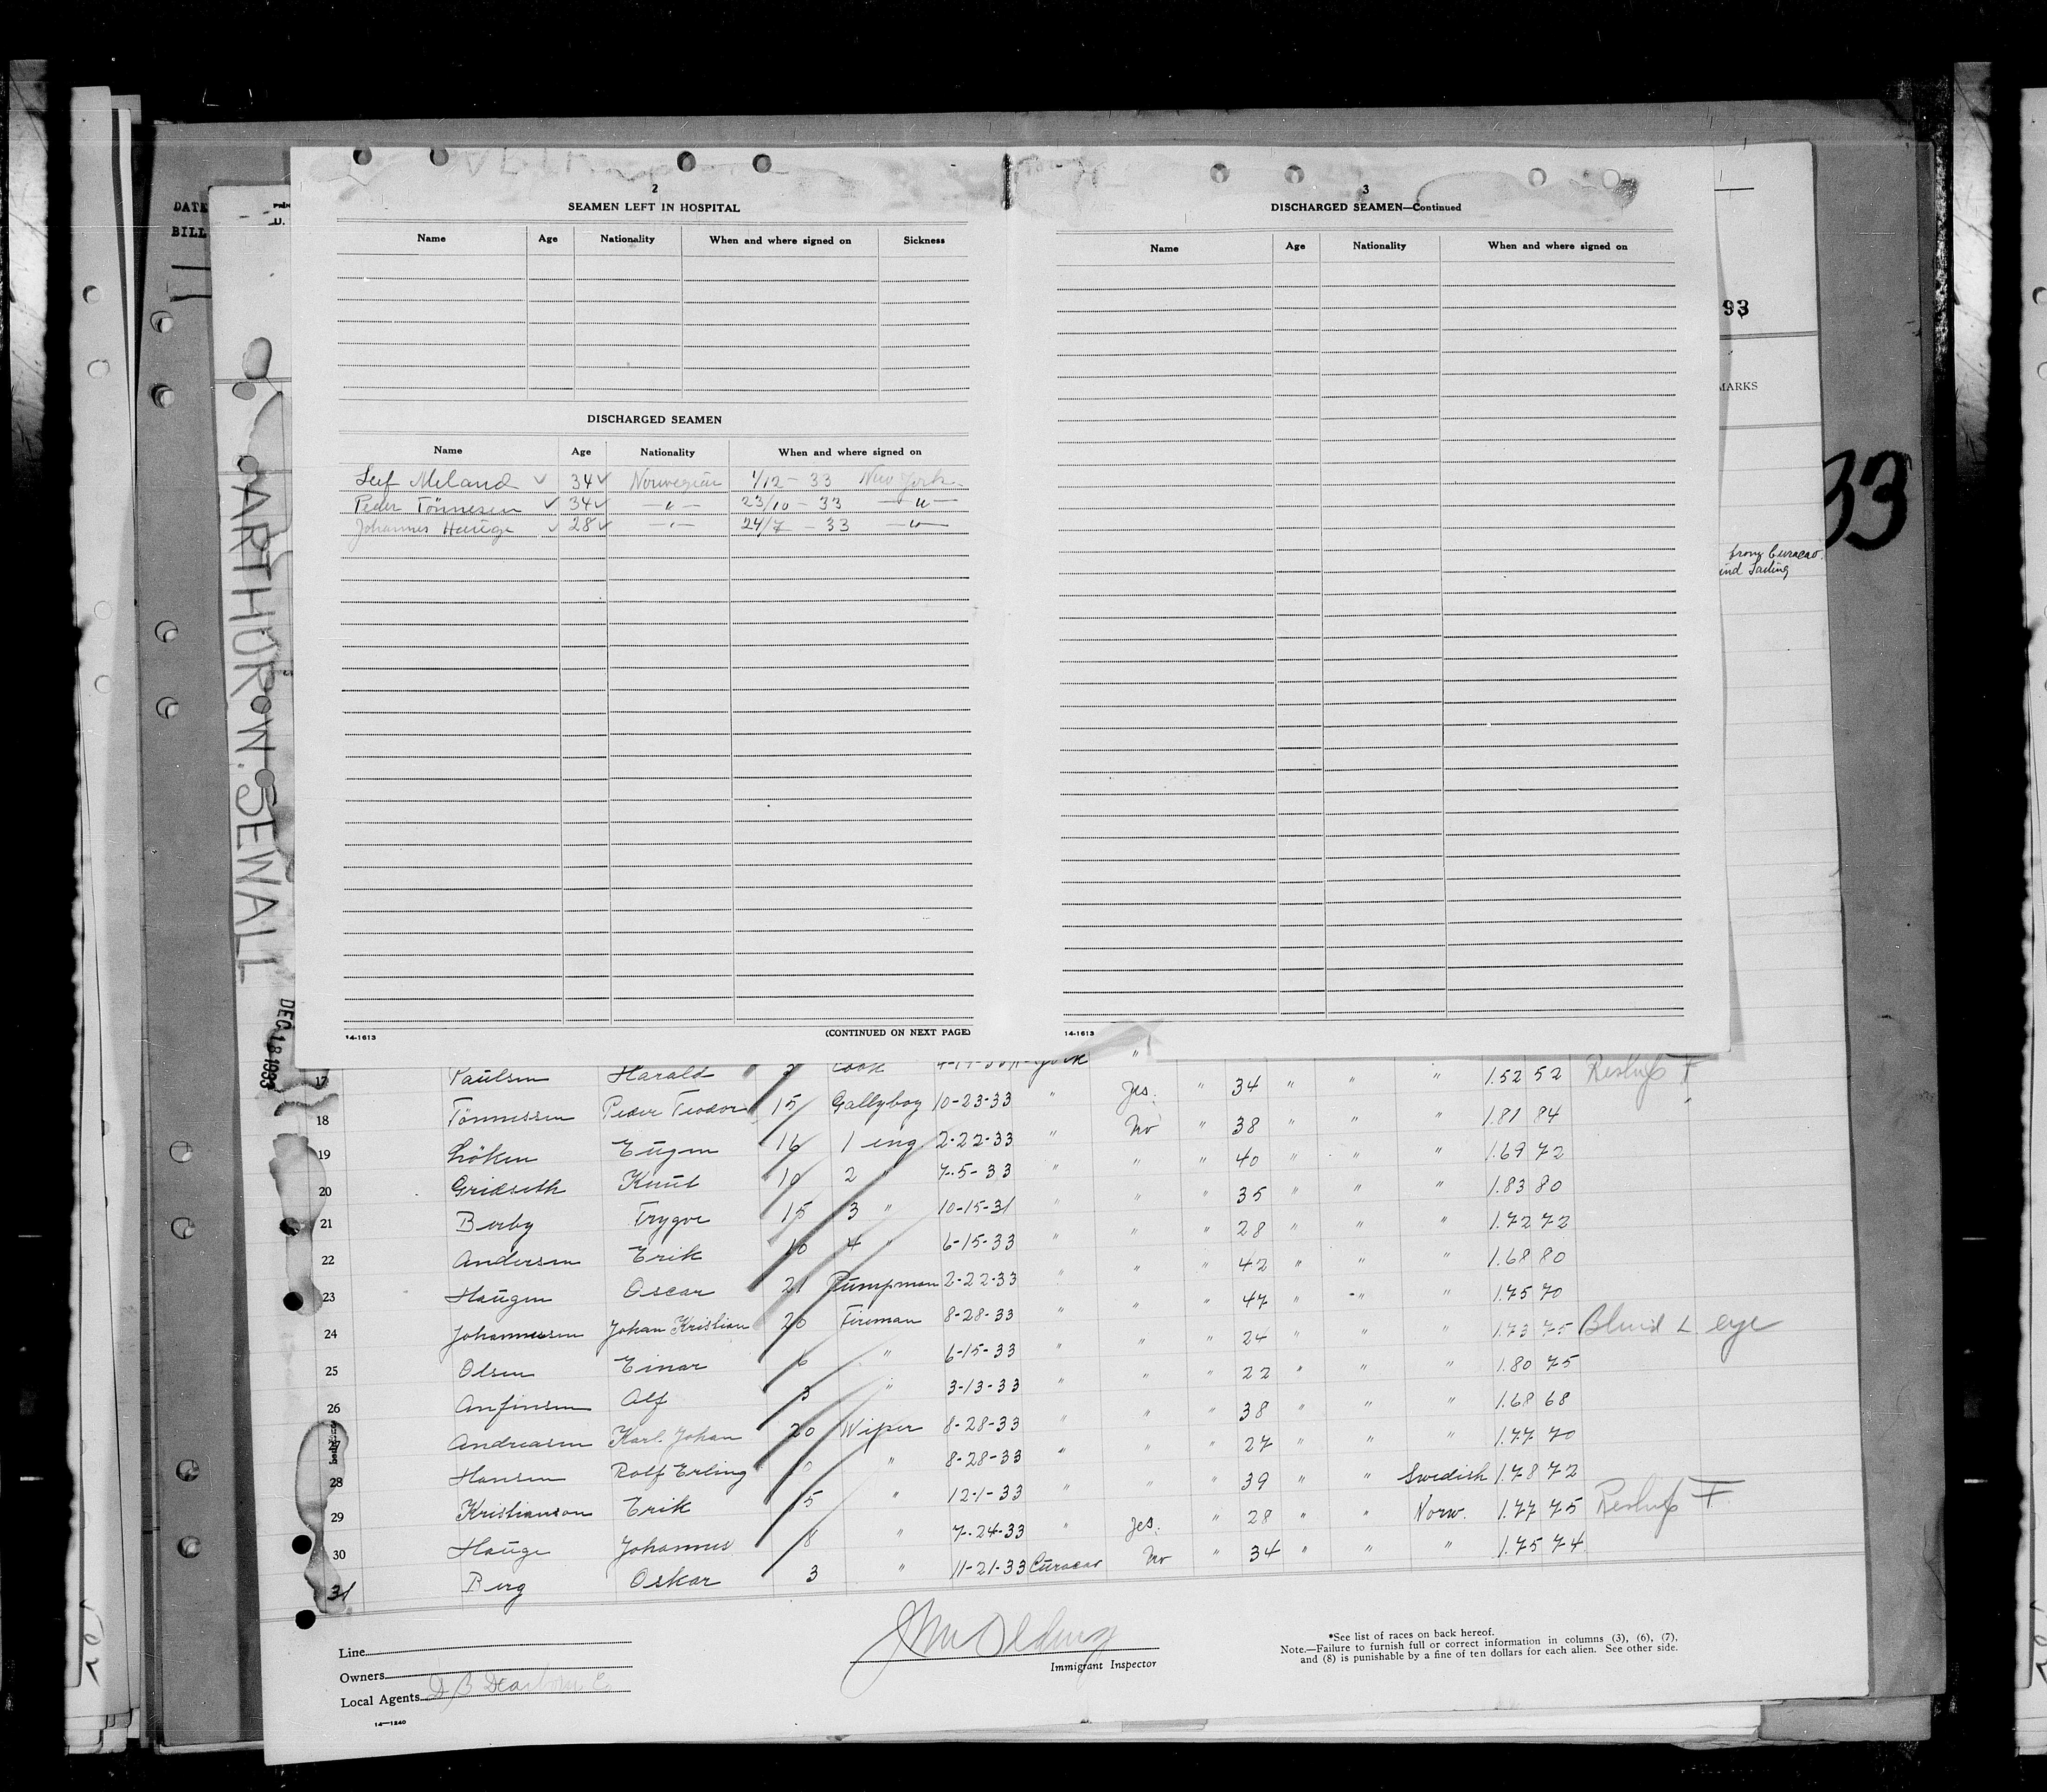 2
SEAMEN LEFT IN HOSPITAL
Name Age Nationality When and where signed on Sickness
DISCHARGED SEAMEN
Name Age Nationality When and where signed on
Leif Meland ✓ 34 ✓ Norwegian 1/12 - 33 New York
Peder Tönnesen ✓ 34 ✓ —"— 23/10 - 33 —"—
Johannes Hauge ✓ 28 ✓ —"— 24/7 - 33 —"—
14-1613 (CONTINUED ON NEXT PAGE)
3
DISCHARGED SEAMEN—Continued
Name Age Nationality When and where signed on
14-1613
DATE
BILL
U.
ARTHUR W. SEWALL
DEC 18 1933
93
MARKS
33
from Curacao
17 Paulsen Harald Cook "
18 Tönnessen Peder Teodor 15 Gallyboy 10-23-33 " Yes. " 34 " " " 1.52 52 Reship F
19 Löken Eugen 16 1 eng 2-22-33 " No " 38 " " " 1.81 84
20 Gridseth Knut 10 2 " 7-5-33 " " " 40 " " " 1.69 72
21 Berby Trygve 15 3 " 10-15-31 " " " 35 " " " 1.83 80
22 Andersen Erik 10 4 " 6-15-33 " " " 28 " " " 1.72 72
23 Haugen Oscar 21 Pumpman 2-22-33 " " " 42 " " " 1.68 80
24 Johannessen Johan Kristian 20 Fireman 8-28-33 " " " 47 " " " 1.75 70
25 Olsen Einar 6 " 6-15-33 " " " 24 " " " 1.73 75 Blind L eye
26 Anfinsen Alf 3 " 3-13-33 " " " 22 " " " 1.80 75
27 Andreasen Karl Johan 20 Wiper 8-28-33 " " " 38 " " " 1.68 68
28 Hansen Rolf Erling 0 " 8-28-33 " " " 27 " " " 1.77 70
29 Kristianson Erik 15 " 12-1-33 " " " 39 " " Swedish 1.78 72
30 Hauge Johannes 8 " 7-24-33 " Yes. " 28 " " Norw. 1.77 75 Reship F
31 Berg Oskar 3 " 11-21-33 Curacao No " 34 " " " 1.75 74
Line
Owners
Local Agents D B Dearborn Co
14—1240
Immigrant Inspector
*See list of races on back hereof.
Note.—Failure to furnish full or correct information in columns (3), (6), (7),
and (8) is punishable by a fine of ten dollars for each alien. See other side.